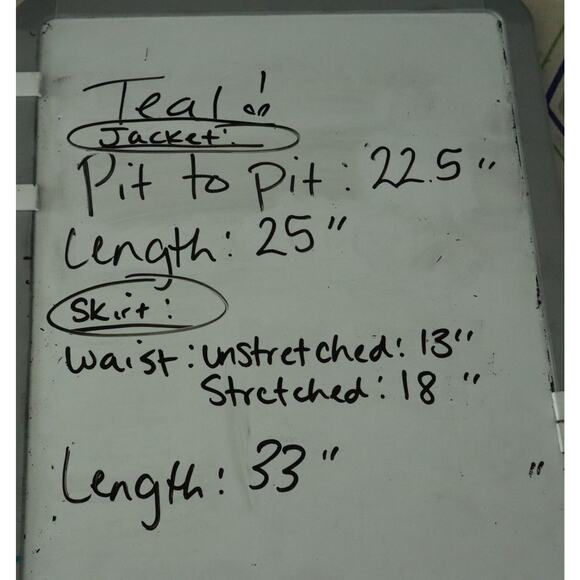 Teal :
Jacket:
Pit to pit: 22.5"
Length: 25"
Skirt:
Waist: unstretched: 13"
Stretched: 18 "
Length: 33 "
"